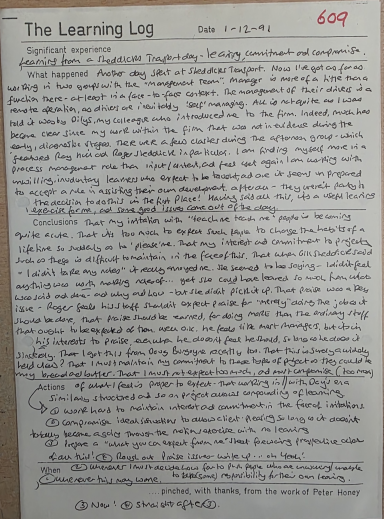 609
The Learning Log Date 1-12-91
Significant experience
Learning from a Sheddicks Transport day - learning, commitment and compromise.
What happened Another day spent at Sheddicks Transport. Now I've got as far as
working in two groups with the "management team". Manager is more of a title than a
function there - at least in a face-to-face context. The management of their drivers is a
remote operation, as drivers are inevitably 'self' managing. All is not quite as I was
told it was by Dilys, my colleague who introduced me to the firm. Indeed, much has
become clear since my work within the firm that was not in evidence during the
early, diagnostic stages. There were a few clashes during the afternoon group - which
featured Reg and Roger Sheddick in particular. I am finding myself more in a
process management role than input/content, and feel yet again I am working with
unwilling, involuntary learners who expect to be taught and are it seems unprepared
to accept a role in assisting their own development. After all - they weren't party to
the decision to do this in the first place! Having said all this, it's a useful learning
exercise for me, and some good issues come out of the day.
Conclusions That my irritation with "teach me teach me" people is becoming
quite acute. That it's too much to expect such people to change the habits of a
lifetime so suddenly as to 'please' me. That my interest and commitment to projects
such as these is difficult to maintain in the face of this. That when Gill Sheddick said
- I didn't take any notes" it really annoyed me. She seemed to be saying - I didn't feel
anything was worth making notes of... yet she could have learned so much from what
was said and done - and why and how - but she didn't pick it up. That praise was a key
issue - Roger feels his staff shouldn't expect praise for "merely" doing the job as it
should be done, that praise should be earned, for doing more than the ordinary stuff
that ought to be expected of them week on week. He feels like most managers, but it's in
his interests to praise even when he doesn't feel he should, so long as he does it
sincerely. That I got this from Doug
held view? That I must maintain my commitment to these type of projects as they could be
my bread and butter. That I must not expect too much, and must compromise (too many)
Actions of what I feel is proper to expect - that working in/with Days on a
similarly structured and so on project allows compounding of learning.
① Work hard to maintain interest and commitment in the face of irritations
② Compromise ideals/intention to allow client pleasing so long as it doesn't
totally become a going through the motions exercise with no learning
③ Prepare a "what you can expect from me" sheet focussing
of all this! ④ Rough out Praise issue - write up... oh yeah!
When ② Whenever I must decide how far to push people who are unwilling/unable
① Whenever this may come. to take (some) responsibility for their own learning.
....pinched, with thanks, from the work of Peter Honey
③ Now! ④ Straight after ③.